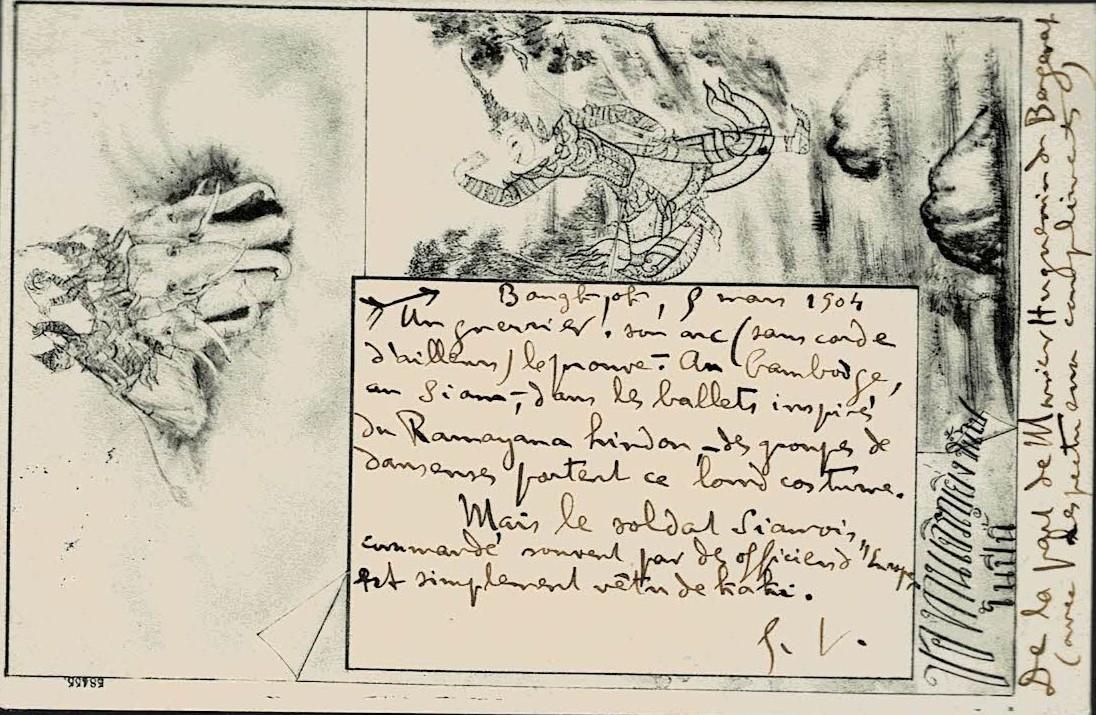 Bangkok, 9 mars 1904
Un guerrier. son arc (sans corde
d'ailleurs) le prouve. Au Cambodge,
au Siam, dans les ballets inspirés
du Ramayana hindou des groupes de
danseuses portent ce lourd costume.
Mais le soldat Siamois,
commandé souvent par des officiers
est simplement vêtu de kaki.
G. V.
De la part de
(avec respectueux compliments)
58455